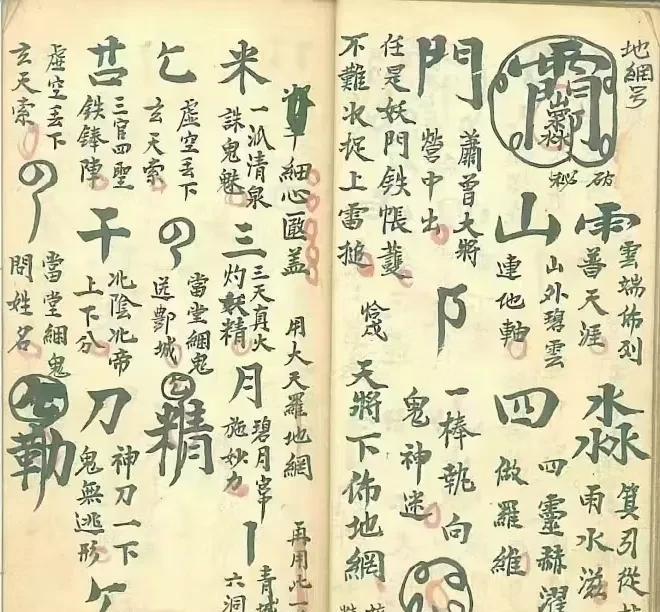 地網号
雨
雲端佈列
普天涯
雨水滋
秘破
山
山外碧雲
連地軸
四
四靈赫濯
做羅維
門
蕭曾大將
營中出
卩
一棒執向
鬼神迷
任是妖門鉄帳
不難水捉上雷搥
天將下佈地網
細心匿盖
用大天羅地網
再用此一
米
一派清泉
誅鬼魅
三
三天真火
灼妖精
月
碧月宰
施妙力
丨
青城
六洞
虛空丟下
玄天索
當堂綑鬼
送酆城
精
三官四聖
鉄鋒陣
干
北陰北帝
上下分
刀
神刀一下
鬼無逃形
虛空丟下
玄天索
當堂綑鬼
問姓名
勒